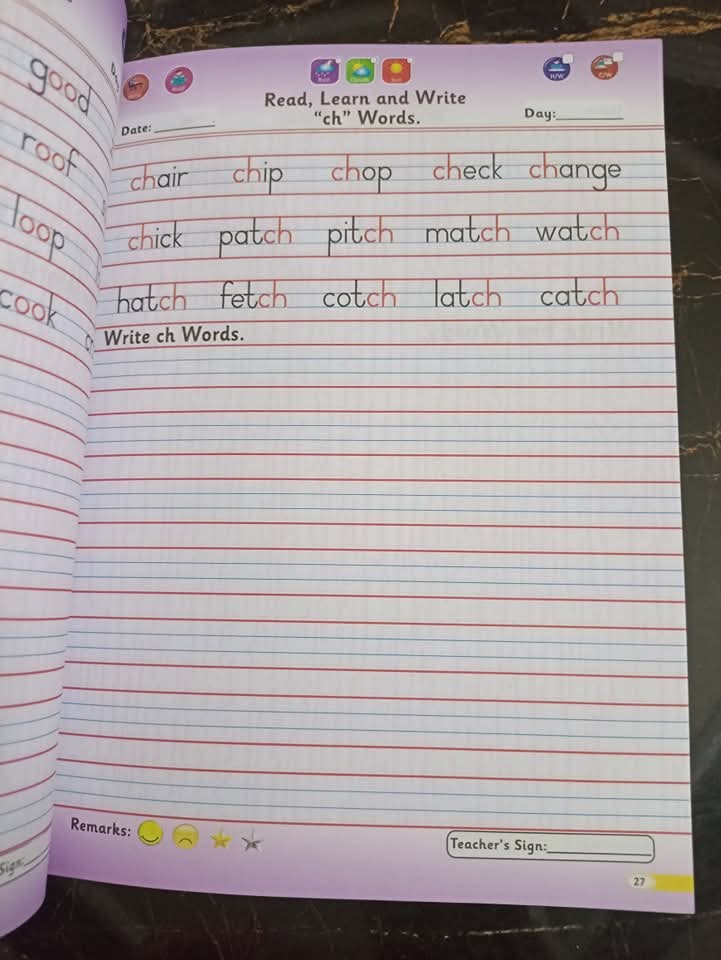 good
roof
loop
cook
Sign:
H/W C/W
Read, Learn and Write
"ch" Words.
Date: Day:
chair chip chop check change
chick patch pitch match watch
hatch fetch cotch latch catch
Write ch Words.
Remarks:
Teacher's Sign:
27